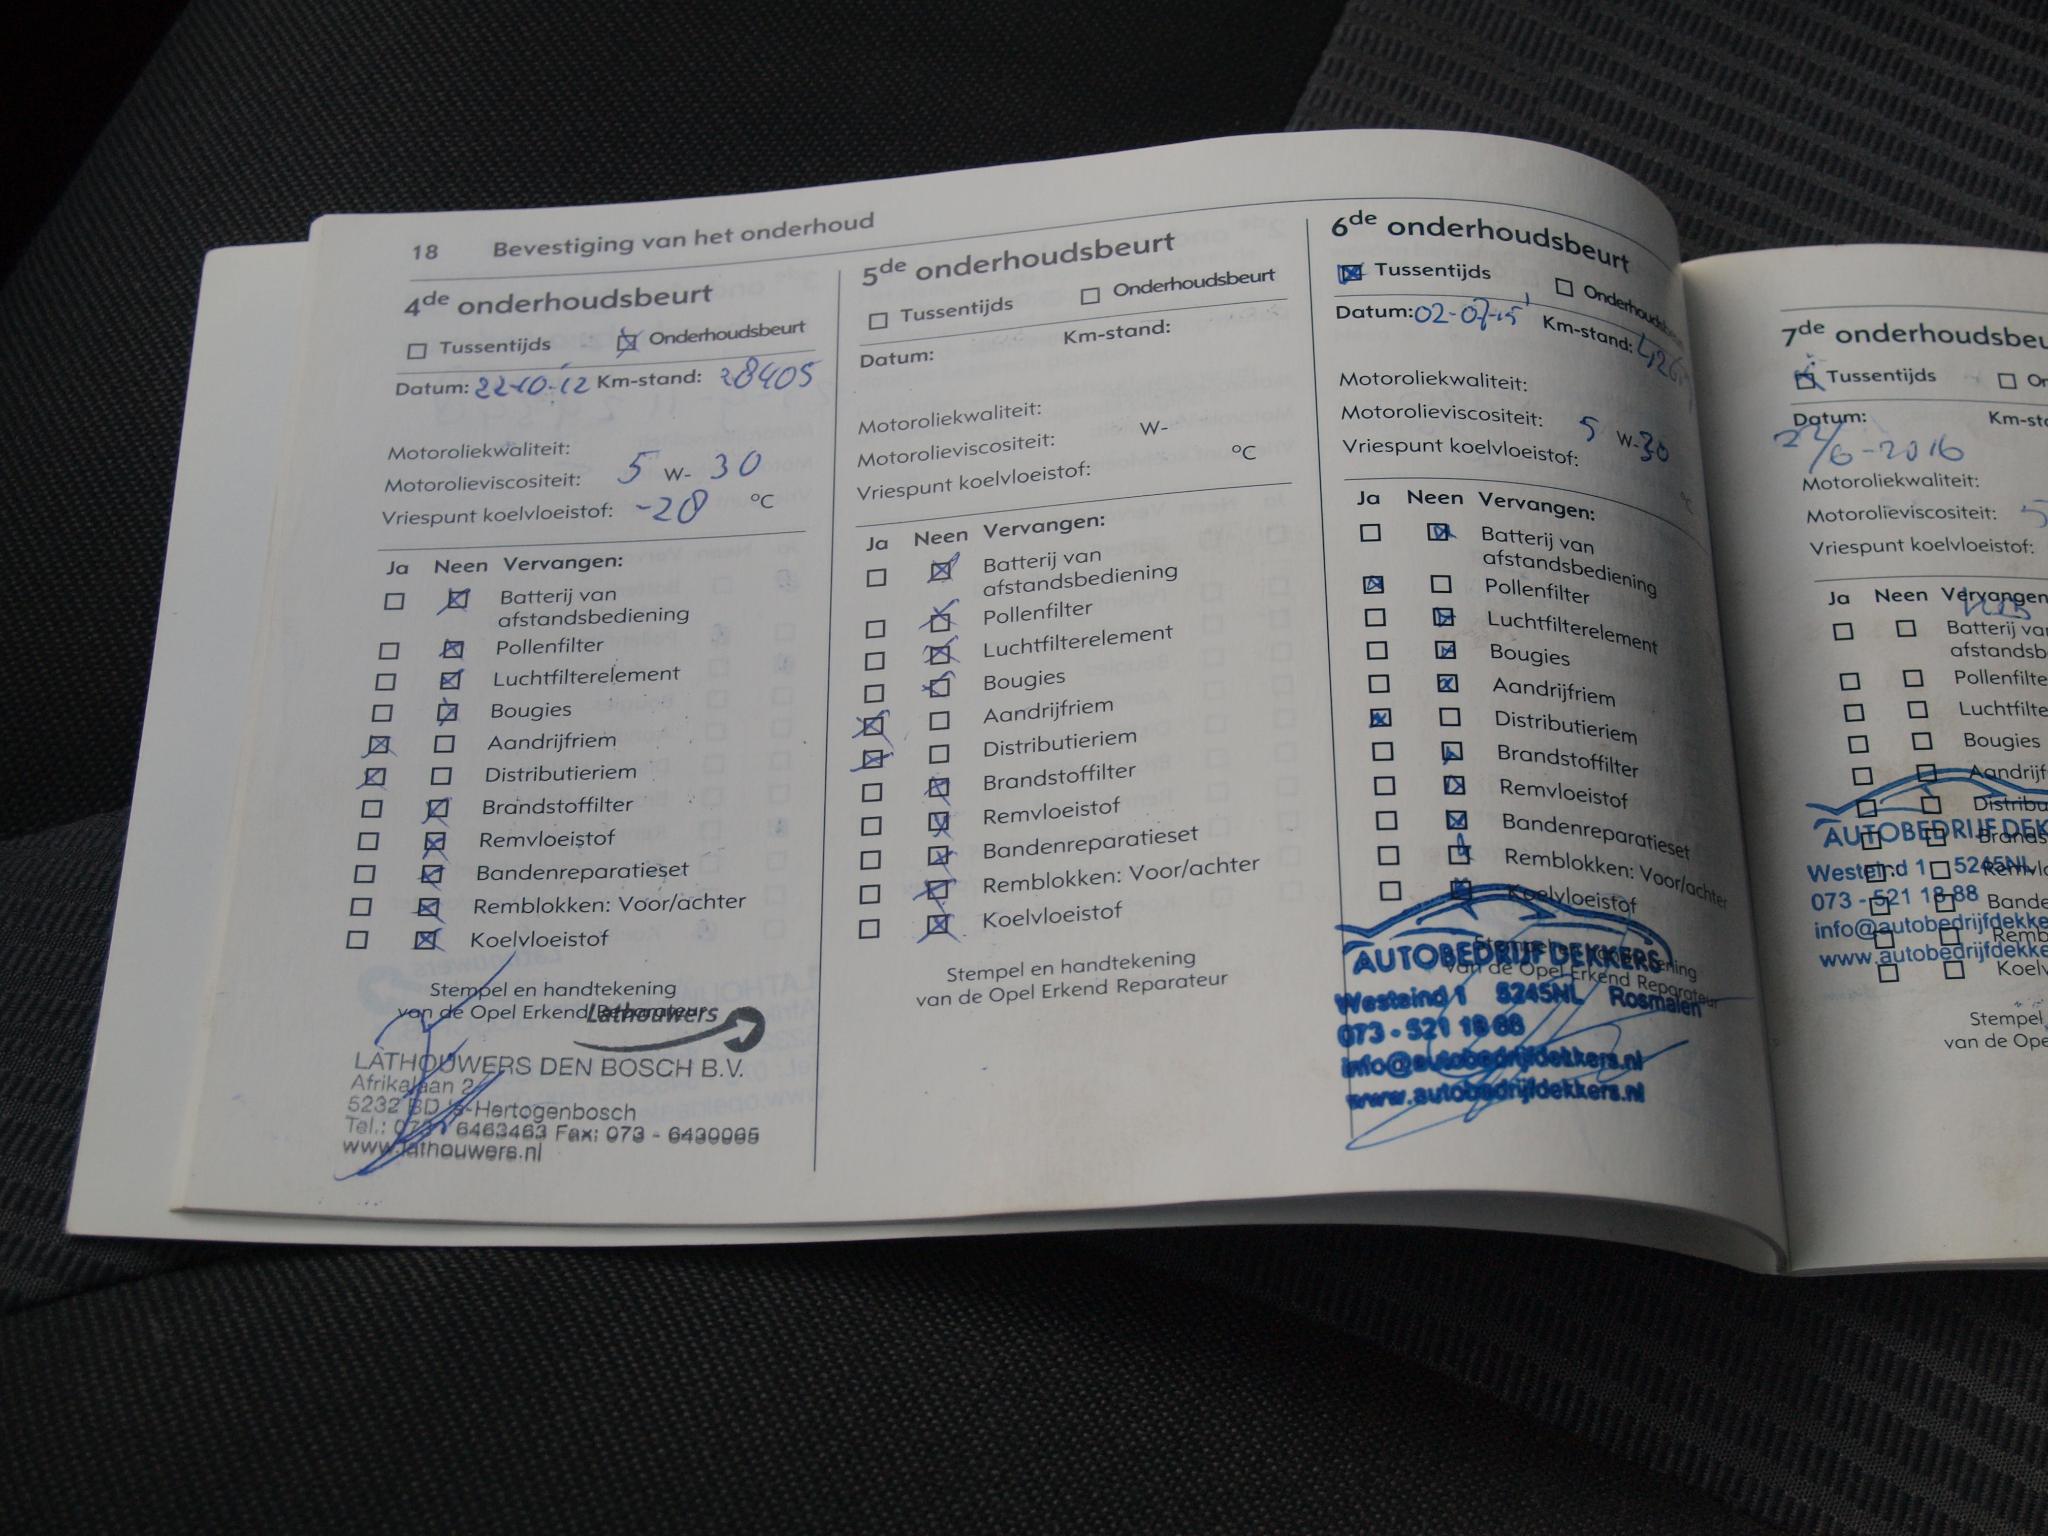 18 Bevestiging van het onderhoud
4de onderhoudsbeurt
Tussentijds Onderhoudsbeurt
Datum: 22-10-12 Km-stand: 28405
Motoroliekwaliteit:
Motorolieviscositeit: 5 W- 30
Vriespunt koelvloeistof: -28 °C
Ja Neen Vervangen:
Batterij van
afstandsbediening
Pollenfilter
Luchtfilterelement
Bougies
Aandrijfriem
Distributieriem
Brandstoffilter
Remvloeistof
Bandenreparatieset
Remblokken: Voor/achter
Koelvloeistof
Stempel en handtekening
van de Opel Erkend Reparateur
Lathouwers
LATHOUWERS DEN BOSCH B.V.
Afrikalaan 2
5232 BD 's-Hertogenbosch
Tel.: 073 - 6463463 Fax: 073 - 6430095
www.lathouwers.nl
5de onderhoudsbeurt
Tussentijds Onderhoudsbeurt
Datum: Km-stand:
Motoroliekwaliteit:
Motorolieviscositeit: W-
Vriespunt koelvloeistof: °C
Ja Neen Vervangen:
Batterij van
afstandsbediening
Pollenfilter
Luchtfilterelement
Bougies
Aandrijfriem
Distributieriem
Brandstoffilter
Remvloeistof
Bandenreparatieset
Remblokken: Voor/achter
Koelvloeistof
Stempel en handtekening
van de Opel Erkend Reparateur
6de onderhoudsbeurt
Tussentijds Onderhoudsbeurt
Datum: 02-07-15 Km-stand:
Motoroliekwaliteit:
Motorolieviscositeit: 5 W-30
Vriespunt koelvloeistof: °C
Ja Neen Vervangen:
Batterij van
afstandsbediening
Pollenfilter
Luchtfilterelement
Bougies
Aandrijfriem
Distributieriem
Brandstoffilter
Remvloeistof
Bandenreparatieset
Remblokken: Voor/achter
Koelvloeistof
Stempel en handtekening
van de Opel Erkend Reparateur
AUTOBEDRIJF DEKKERS
Westeind 1 5245NL Rosmalen
073 - 521 18 88
info@autobedrijfdekkers.nl
www.autobedrijfdekkers.nl
7de onderhoudsbeu
Tussentijds On
Datum: Km-sta
22/6-2016
Motoroliekwaliteit:
Motorolieviscositeit: 5
Vriespunt koelvloeistof:
Ja Neen Vervangen
Batterij va
afstandsb
Pollenfilte
Luchtfilte
Bougies
Aandrijf
Distribu
Brands
Remvlo
Bande
Remb
Koelv
AUTOBEDRIJF DEK
Westeind 1 5245NL
073 - 521 18 88
info@autobedrijfdekke
www.autobedrijfdekke
Stempel
van de Ope